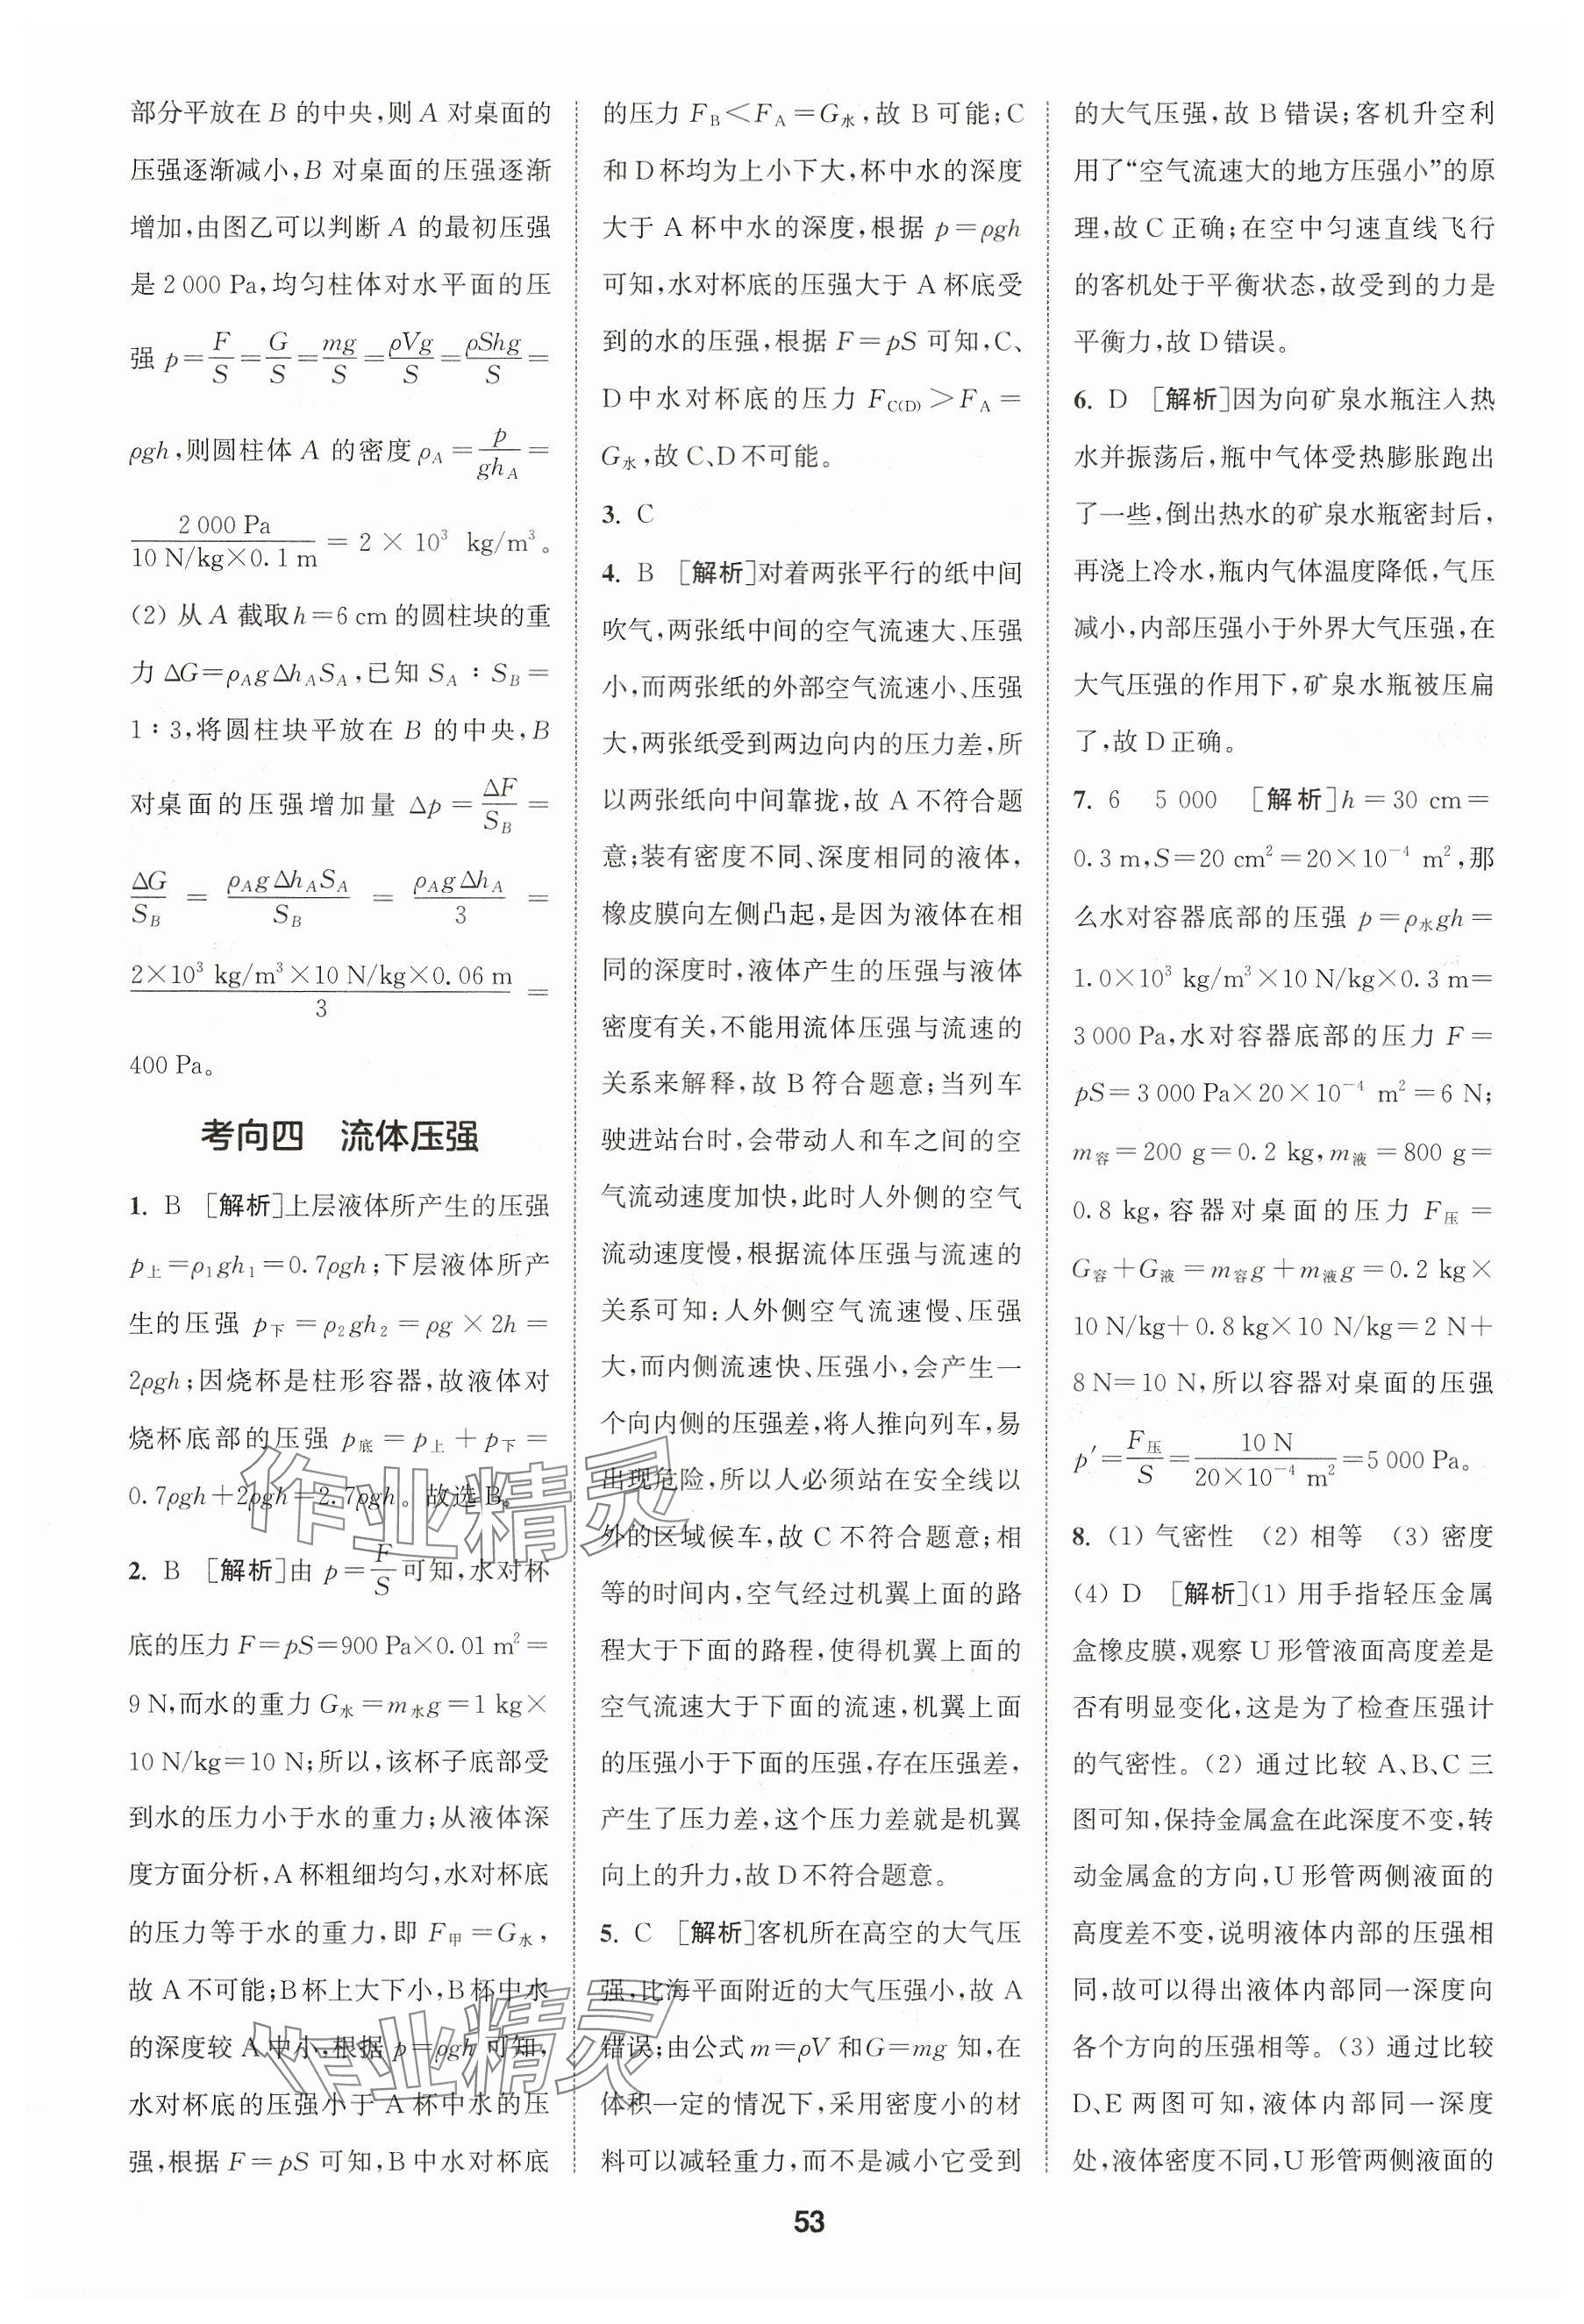 部分平放在 B 的中央,则 A 对桌面的
压强逐渐减小,B 对桌面的压强逐渐
增加,由图乙可以判断 A 的最初压强
是 2 000 Pa,均匀柱体对水平面的压
强 p=F/S=G/S=mg/S=ρVg/S=ρShg/S=
ρgh,则圆柱体 A 的密度 ρA=p/ghA=
2 000 Pa/10 N/kg×0.1 m=2×10³ kg/m³。
(2) 从 A 截取 h=6 cm 的圆柱块的重
力 ΔG=ρAgΔhASA,已知 SA∶SB=
1∶3,将圆柱块平放在 B 的中央,B
对桌面的压强增加量 Δp=ΔF/SB=
ΔG/SB=ρAgΔhASA/SB=ρAgΔhA/3=
2×10³ kg/m³×10 N/kg×0.06 m/3=
400 Pa。
考向四 流体压强
1. B [解析]上层液体所产生的压强
p上=ρ1gh1=0.7ρgh;下层液体所产
生的压强 p下=ρ2gh2=ρg×2h=
2ρgh;因烧杯是柱形容器,故液体对
烧杯底部的压强 p底=p上+p下=
0.7ρgh+2ρgh=2.7ρgh。故选 B。
2. B [解析]由 p=F/S可知,水对杯
底的压力 F=pS=900 Pa×0.01 m²=
9 N,而水的重力 G水=m水g=1 kg×
10 N/kg=10 N;所以,该杯子底部受
到水的压力小于水的重力;从液体深
度方面分析,A 杯粗细均匀,水对杯底
的压力等于水的重力,即 F甲=G水,
故 A 不可能;B杯上大下小,B 杯中水
的深度较 A 中小,根据 p=ρgh 可知,
水对杯底的压强小于 A 杯中水的压
强,根据 F=pS 可知,B 中水对杯底
的压力 FB<FA=G水,故 B 可能;C
和 D 杯均为上小下大,杯中水的深度
大于 A 杯中水的深度,根据 p=ρgh
可知,水对杯底的压强大于 A 杯底受
到的水的压强,根据 F=pS 可知,C、
D 中水对杯底的压力 FC(D)>FA=
G水,故 C、D 不可能。
3. C
4. B [解析]对着两张平行的纸中间
吹气,两张纸中间的空气流速大、压强
小,而两张纸的外部空气流速小、压强
大,两张纸受到两边向内的压力差,所
以两张纸向中间靠拢,故 A 不符合题
意;装有密度不同、深度相同的液体,
橡皮膜向左侧凸起,是因为液体在相
同的深度时,液体产生的压强与液体
密度有关,不能用流体压强与流速的
关系来解释,故 B 符合题意;当列车
驶进站台时,会带动人和车之间的空
气流动速度加快,此时人外侧的空气
流动速度慢,根据流体压强与流速的
关系可知:人外侧空气流速慢、压强
大,而内侧流速快、压强小,会产生一
个向内侧的压强差,将人推向列车,易
出现危险,所以人必须站在安全线以
外的区域候车,故 C 不符合题意;相
等的时间内,空气经过机翼上面的路
程大于下面的路程,使得机翼上面的
空气流速大于下面的流速,机翼上面
的压强小于下面的压强,存在压强差,
产生了压力差,这个压力差就是机翼
向上的升力,故 D 不符合题意。
5. C [解析]客机所在高空的大气压
强,比海平面附近的大气压强小,故 A
错误;由公式 m=ρV 和G=mg 知,在
体积一定的情况下,采用密度小的材
料可以减轻重力,而不是减小它受到
的大气压强,故 B 错误;客机升空利
用了“空气流速大的地方压强小”的原
理,故 C 正确;在空中匀速直线飞行
的客机处于平衡状态,故受到的力是
平衡力,故 D 错误。
6. D [解析]因为向矿泉水瓶注入热
水并振荡后,瓶中气体受热膨胀跑出
了一些,倒出热水的矿泉水瓶密封后,
再浇上冷水,瓶内气体温度降低,气压
减小,内部压强小于外界大气压强,在
大气压强的作用下,矿泉水瓶被压扁
了,故 D 正确。
7. 6 5 000 [解析]h=30 cm=
0.3 m,S=20 cm²=20×10⁻⁴ m²,那
么水对容器底部的压强 p=ρ水gh=
1.0×10³ kg/m³×10 N/kg×0.3 m=
3 000 Pa,水对容器底部的压力 F=
pS=3 000 Pa×20×10⁻⁴ m²=6 N;
m容=200 g=0.2 kg,m液=800 g=
0.8 kg,容器对桌面的压力 F压=
G容+G液=m容g+m液g=0.2 kg×
10 N/kg+0.8 kg×10 N/kg=2 N+
8 N=10 N,所以容器对桌面的压强
p′=F压/S=10 N/20×10⁻⁴ m²=5 000 Pa。
8. (1) 气密性 (2) 相等 (3) 密度
(4) D [解析](1) 用手指轻压金属
盒橡皮膜,观察 U 形管液面高度差是
否有明显变化,这是为了检查压强计
的气密性。(2) 通过比较 A、B、C 三
图可知,保持金属盒在此深度不变,转
动金属盒的方向,U 形管两侧液面的
高度差不变,说明液体内部的压强相
同,故可以得出液体内部同一深度向
各个方向的压强相等。(3) 通过比较
D、E 两图可知,液体内部同一深度
处,液体密度不同,U 形管两侧液面的
53
作业精灵
作业精灵